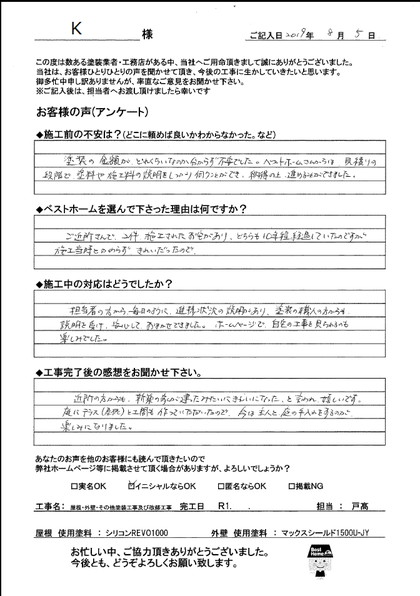 K 様
ご記入日 2019年 8月 5日
この度は数ある塗装業者・工務店がある中、当社へご用命頂きまして誠にありがとうございました。
当社は、お客様ひとりひとりの声を聞かせて頂き、今後の工事に生かしていきたいと思います。
御多忙中申し訳ありませんが、率直なご意見をお聞かせ下さい。
※ご記入後は、担当者へお渡し頂けましたら幸いです
お客様の声(アンケート)
◆施工前の不安は?(どこに頼めば良いかわからなかった。など)
塗装の金額が、どれくらいなのか分からず不安でした。ベストホームさんからは 見積りの
段階で塗料や施工料の説明をしっかり伺うことができ、納得の上進めることができました。
◆ベストホームを選んで下さった理由は何ですか?
ご近所さんで、2件、施工されたお宅があり、どちらも10年程経過していたのですが
施工当時とかわらず きれいだったので。
◆施工中の対応はどうでしたか?
担当者の方から、毎日のように、進捗状況の説明があり、塗装の職人の方からも
説明を受け、安心しておまかせできました。ホームページで、自宅の工事を見られるのも
楽しみでした。
◆工事完了後の感想をお聞かせ下さい。
近所の方からも、新築の家が建ったみたいにきれいになった、と言われ、嬉しいです。
庭にテラス
と土間も作っていただいたので、今は主人と庭の手入れをするのが
楽しみになりました。
あなたのお声を他のお客様にも読んで頂きたいので
弊社ホームページ等に掲載させて頂く場合がありますが、よろしいでしょうか?
□実名OK ☑イニシャルならOK □匿名ならOK □掲載NG
工事名: 屋根・外壁・その他塗装工事及び改修工事 完工日 R1. . 担当 : 戸高
屋根 使用塗料 : シリコンREVO1000 外壁 使用塗料 : マックスシールド1500U-JY
お忙しい中、ご協力頂きありがとうございました。
今後とも、どうぞよろしくお願い致します。
Best Home